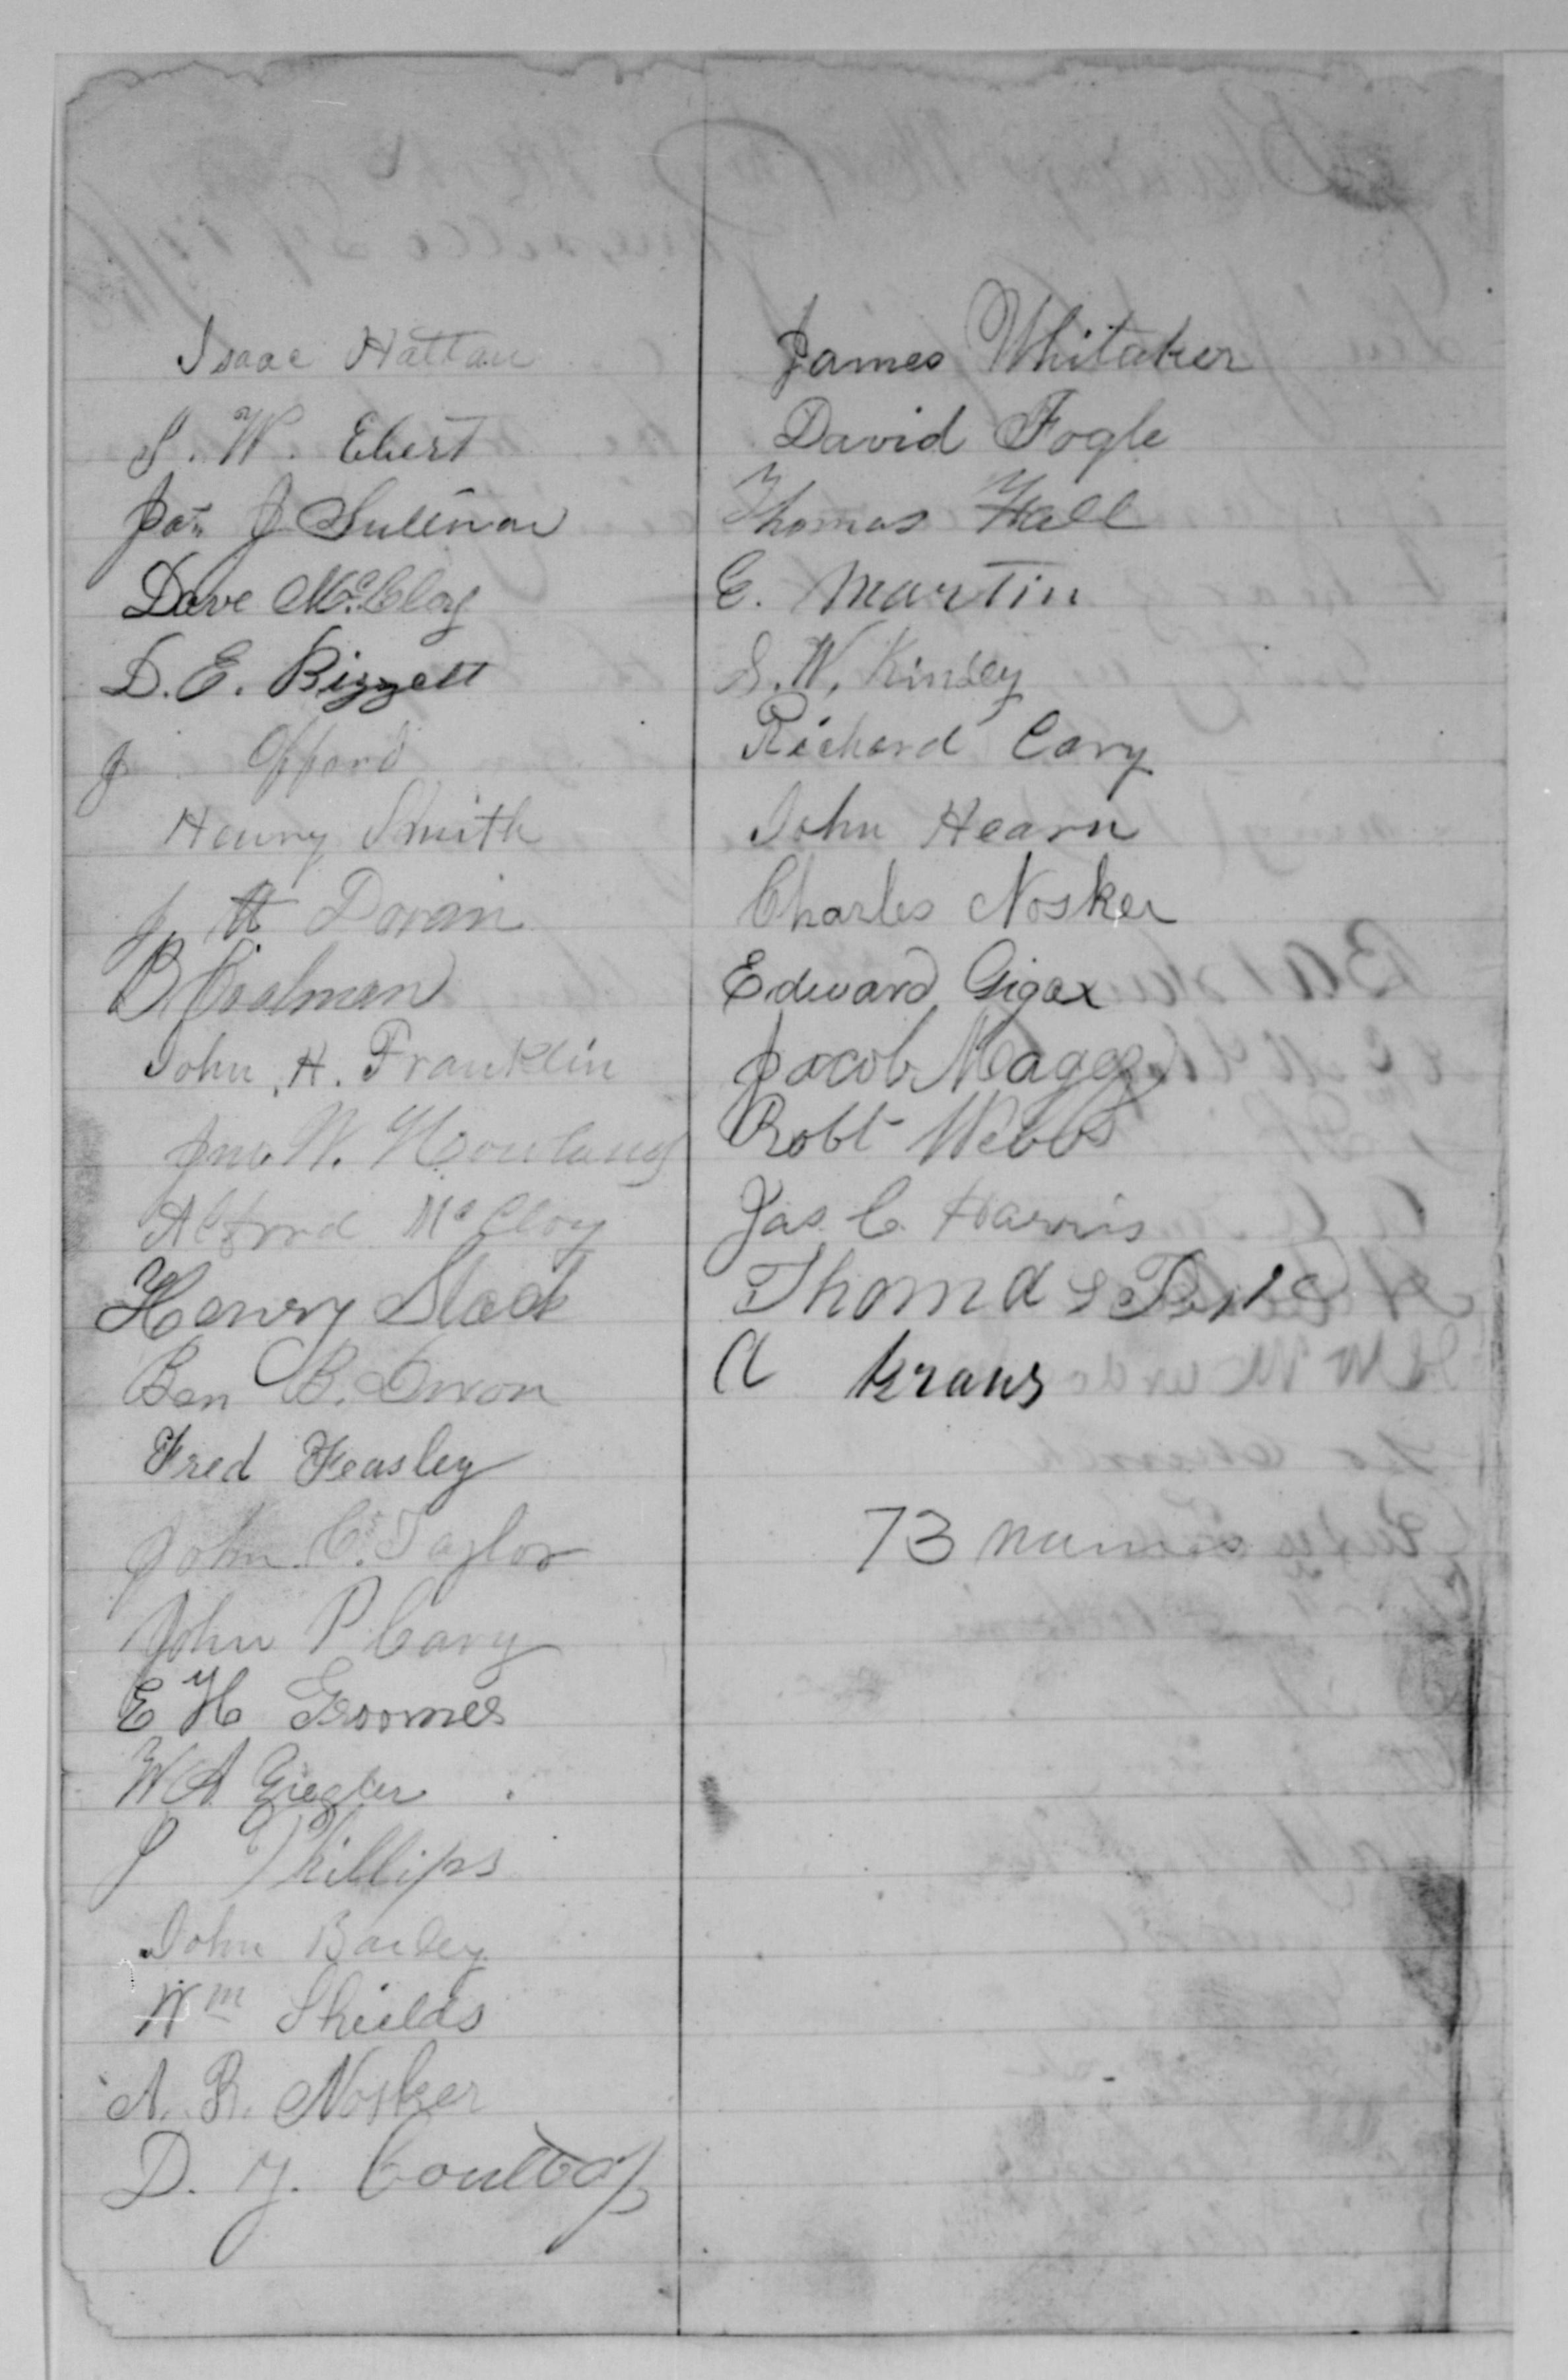 Isaac Hattan
S. W. Ebert
Jas J Sullivan
Dave McCloy
D. E. Bizzell
J Offord
Henry Smith
J H Doran
B
John H. Franklin
Jno. W.
Alfred McCloy
Henry Slack
Ben B. Dixon
Fred Feasley
John C. Taylor
John P Cary
E H Groomes
W A Ziegler
J Phillips
John Bailey
Wm Shields
A. R. Nosker
D. Y. Coultas
James Whitaker
David Fogle
Thomas Hall
E. Martin
S. W. Kinsey
Richard Cary
John Hearn
Charles Nosker
Edward Gigax
Jacob
Robt Webb
Jas. C. Harris
Thomas
A Kraus
73 names